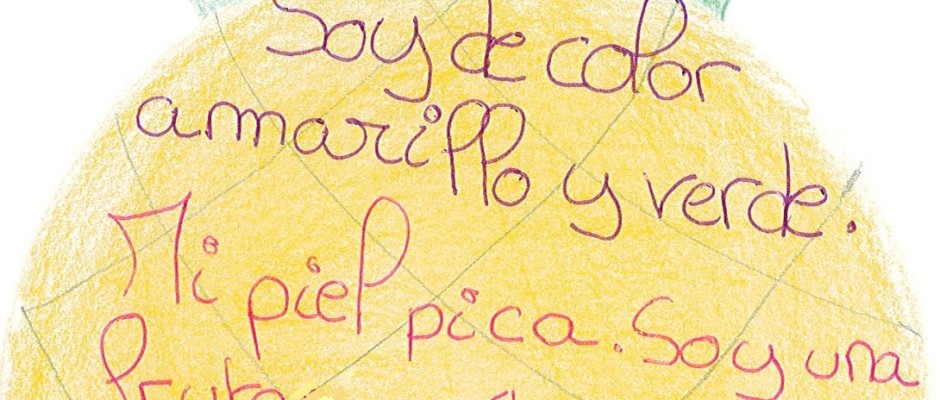 Soy de color
amarillo y verde.
Mi piel pica. Soy una
fruta